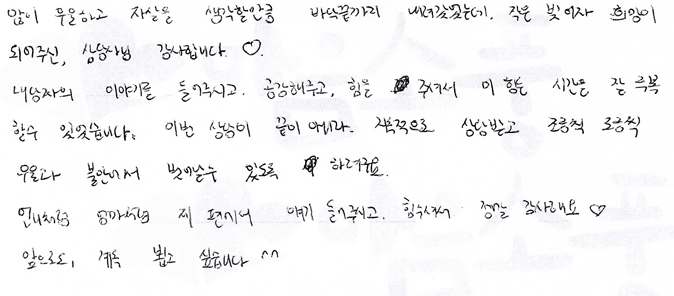 많이 우울하고 자살을 생각할만큼 바닥끝까지 내려갔었는데. 작은 빛이자 희망이
되어주신, 상담사님 감사합니다. ♡.
내담자의 이야기를 들어주시고. 공감해주고, 힘을 주셔서 이 힘든 시간을 잘 극복
할수 있었습니다. 이번 상담이 끝이 아니라. 지속적으로 상담받고 조금씩 조금씩
우울과 불안에서 벗어날수 있도록 하려구요.
언니처럼 엄마처럼 제 편에서 얘기 들어주시고. 힘주셔서 정말 감사해요 ♡
앞으로도, 계속 뵙고 싶습니다 ^^